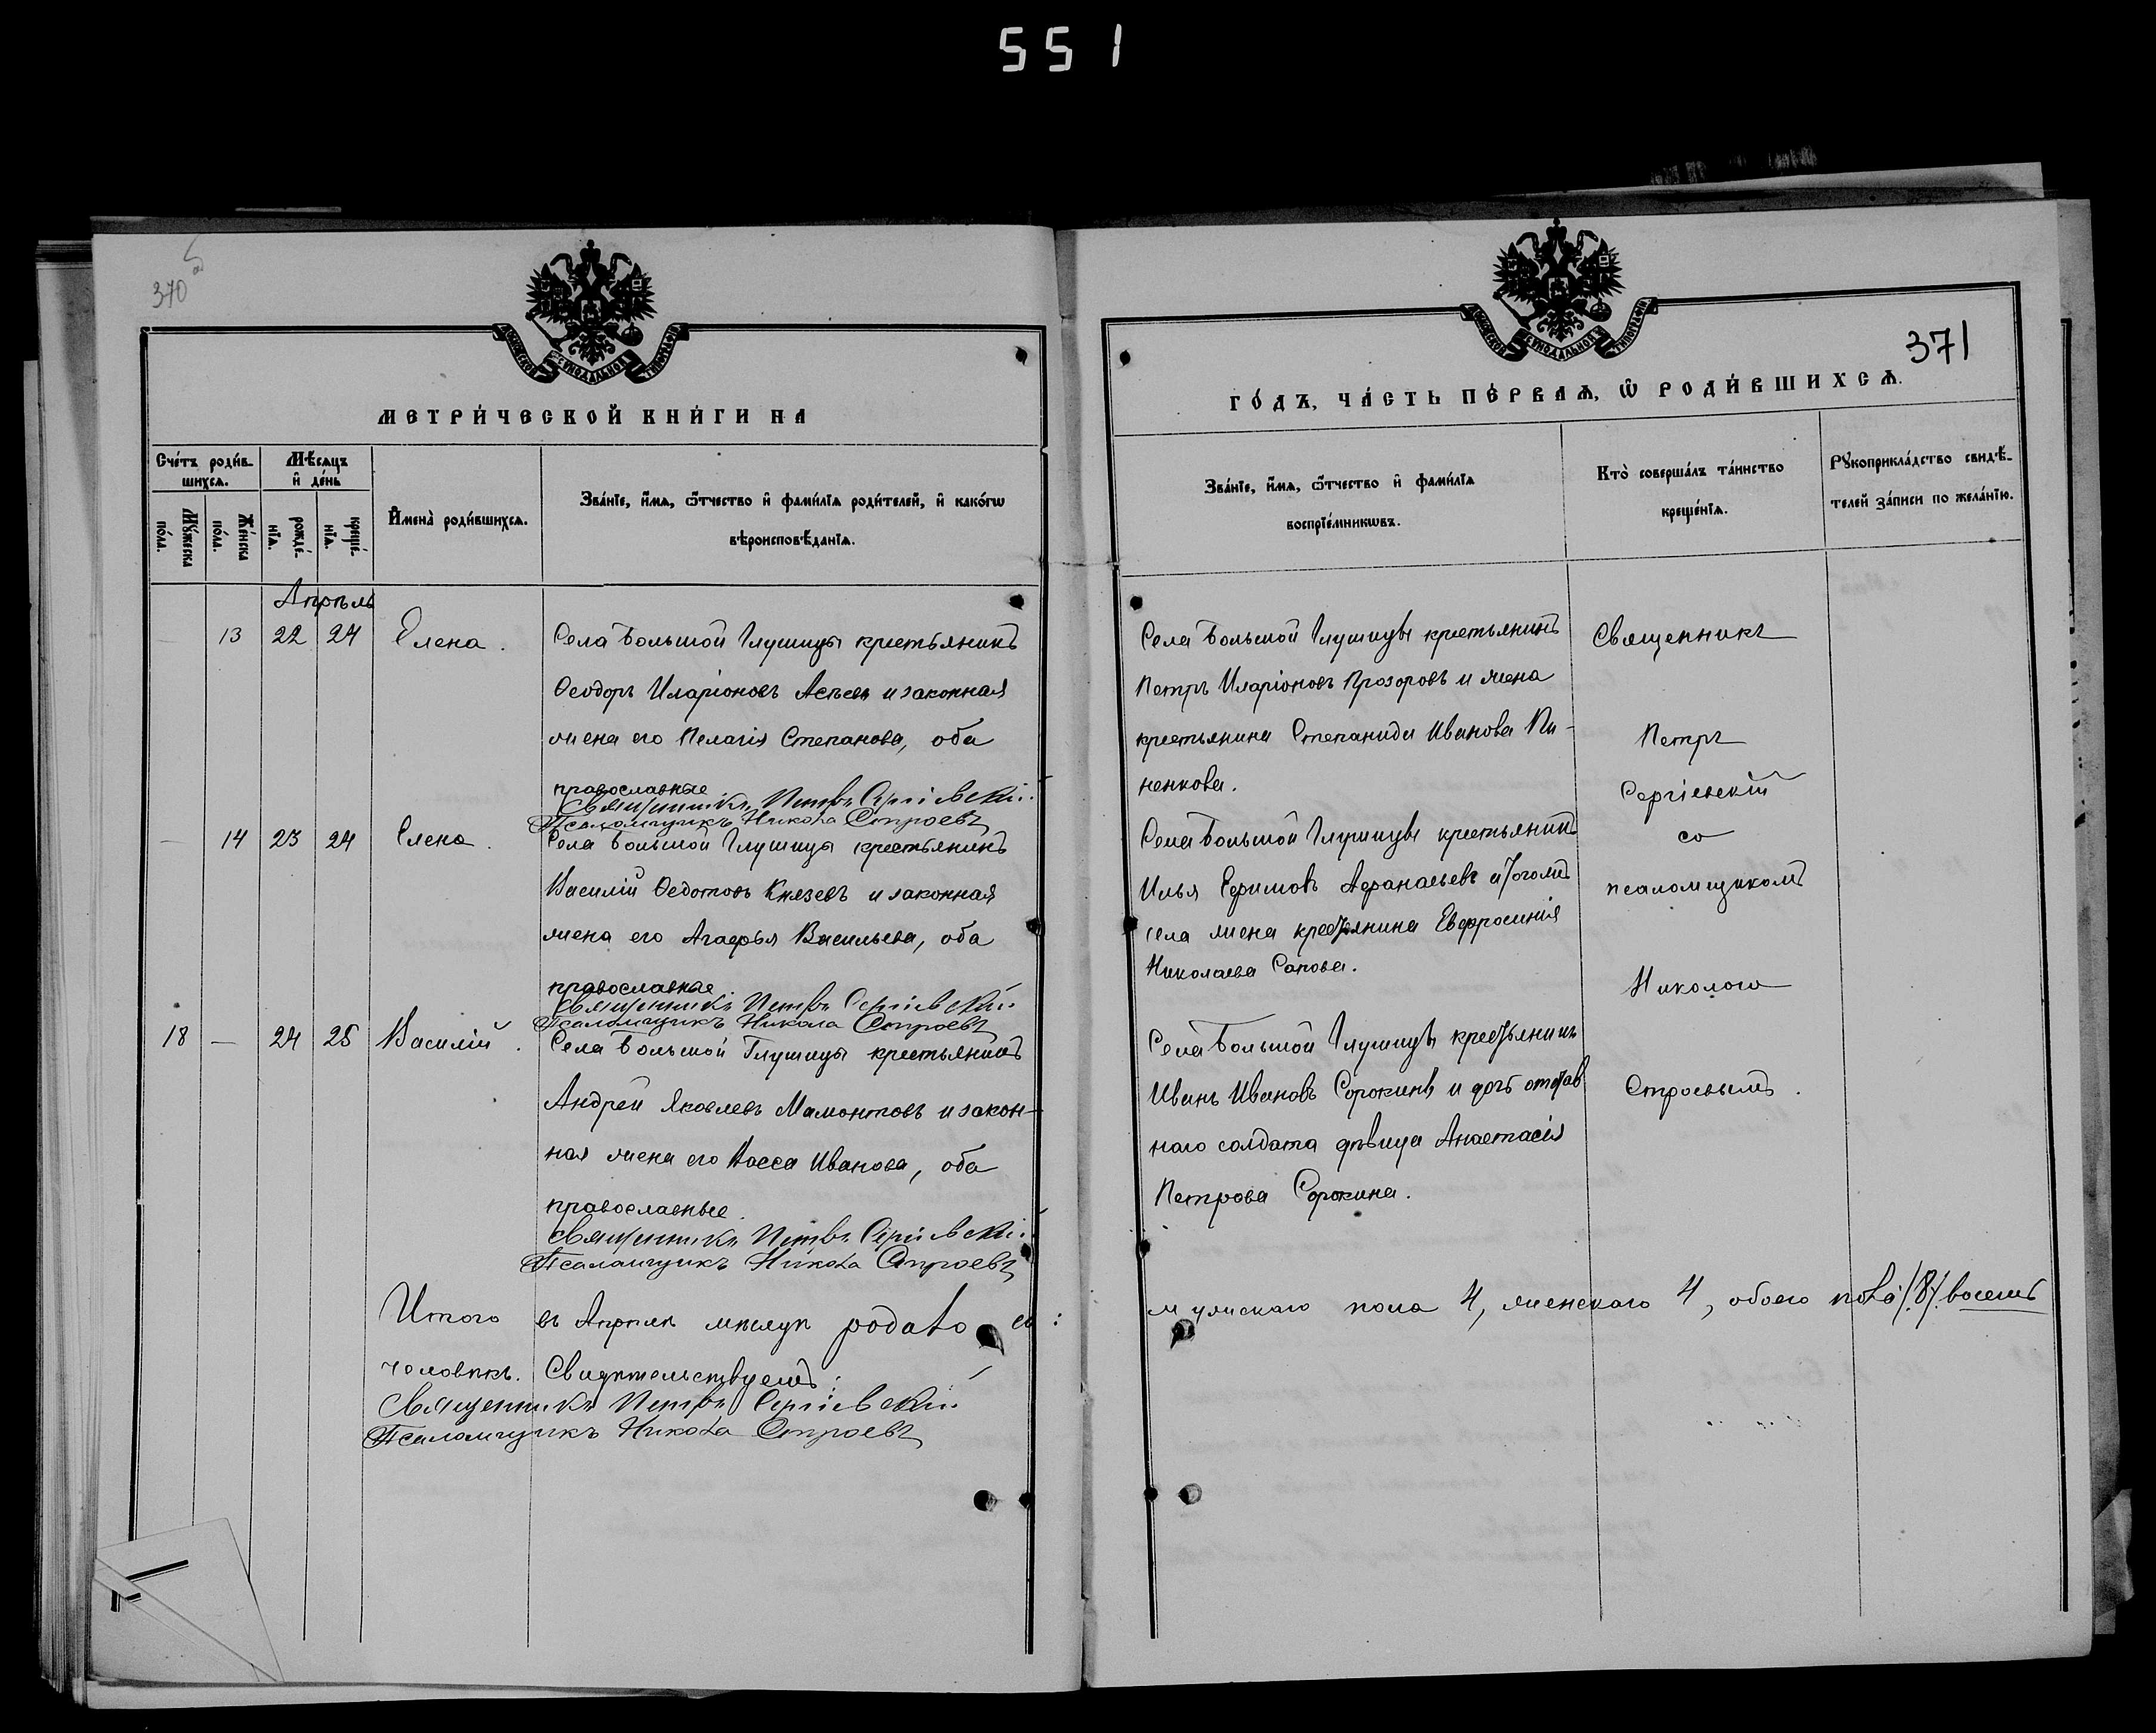 551
370
МЕТРИ́ЧЕСКОЙ КНИ́ГИ НА
Сче́тъ роди́в-
шихсѧ.
Мꙋ́жеска
по́ла.
Же́нска
по́ла.
Мѣ́сѧцъ
и҆ де́нь
рожде́-
нїѧ.
креще́-
нїѧ.
И҆мена̀ роди́вшихсѧ.
Зва́нїе, и҆́мѧ, ѻ҆́тчество и҆ фами́лїѧ роди́телей, и҆ како́гѡ
вѣроисповѣ́данїѧ.
Апрѣль
13 22 24 Елена.
Села Большой Глушицы крестьянинъ
Ѳеодоръ Иларіоновъ Асѣевъ и законная
жена его Пелагія Степанова, оба
православные
Священникъ Петръ Сергіевскій
Псаломщикъ Никола Строевъ
14 23 24 Елена.
Села Большой Глушицы крестьянинъ
Василій Ѳедотовъ Князевъ и законная
жена его Агафья Васильева, оба
православные
Священникъ Петръ Сергіевскій
Псаломщикъ Никола Строевъ
18 — 24 25 Василій.
Села Большой Глушицы крестьянинъ
Андрей Яковлевъ Мамонтовъ и закон-
ная жена его Васса Иванова, оба
православные.
Священникъ Петръ Сергіевскій
Псаломщикъ Никола Строевъ
Итого въ Апрѣлѣ мѣсяцѣ родилось:
человѣкъ. Свидѣтельствуемъ:
Священникъ Петръ Сергіевскій
Псаломщикъ Никола Строевъ
371
ГО́ДЪ, ЧА́СТЬ ПЕ́РВАѦ, Ѽ РОДИ́ВШИХСѦ.
Зва́нїе, и҆́мѧ, ѻ҆́тчество и҆ фами́лїѧ
воспрїе́мникѡвъ.
Кто̀ соверша́лъ та́инство
креще́нїѧ.
Рꙋкоприкла́дство свидѣ́-
телей за́писи по жела́нїю.
Села Большой Глушицы крестьянинъ
Петръ Иларіоновъ Прозоровъ и жена
крестьянина Степанида Иванова Пи-
ненкова.
Села Большой Глушицы крестьянинъ
Илья Ефимовъ Афанасьевъ и тогожъ
села жена крестьянина Евфросинія
Николаева Сапова.
Села Большой Глушицы крестьянинъ
Иванъ Ивановъ Сорокинъ и дочь отстав
наго солдата дѣвица Анастасія
Петрова Сорокина.
Священникъ
Петръ
Сергіевскій
со
псаломщикомъ
Николою
Строевымъ.
мужскаго пола 4, женскаго 4, обоего пола /8/ восемь